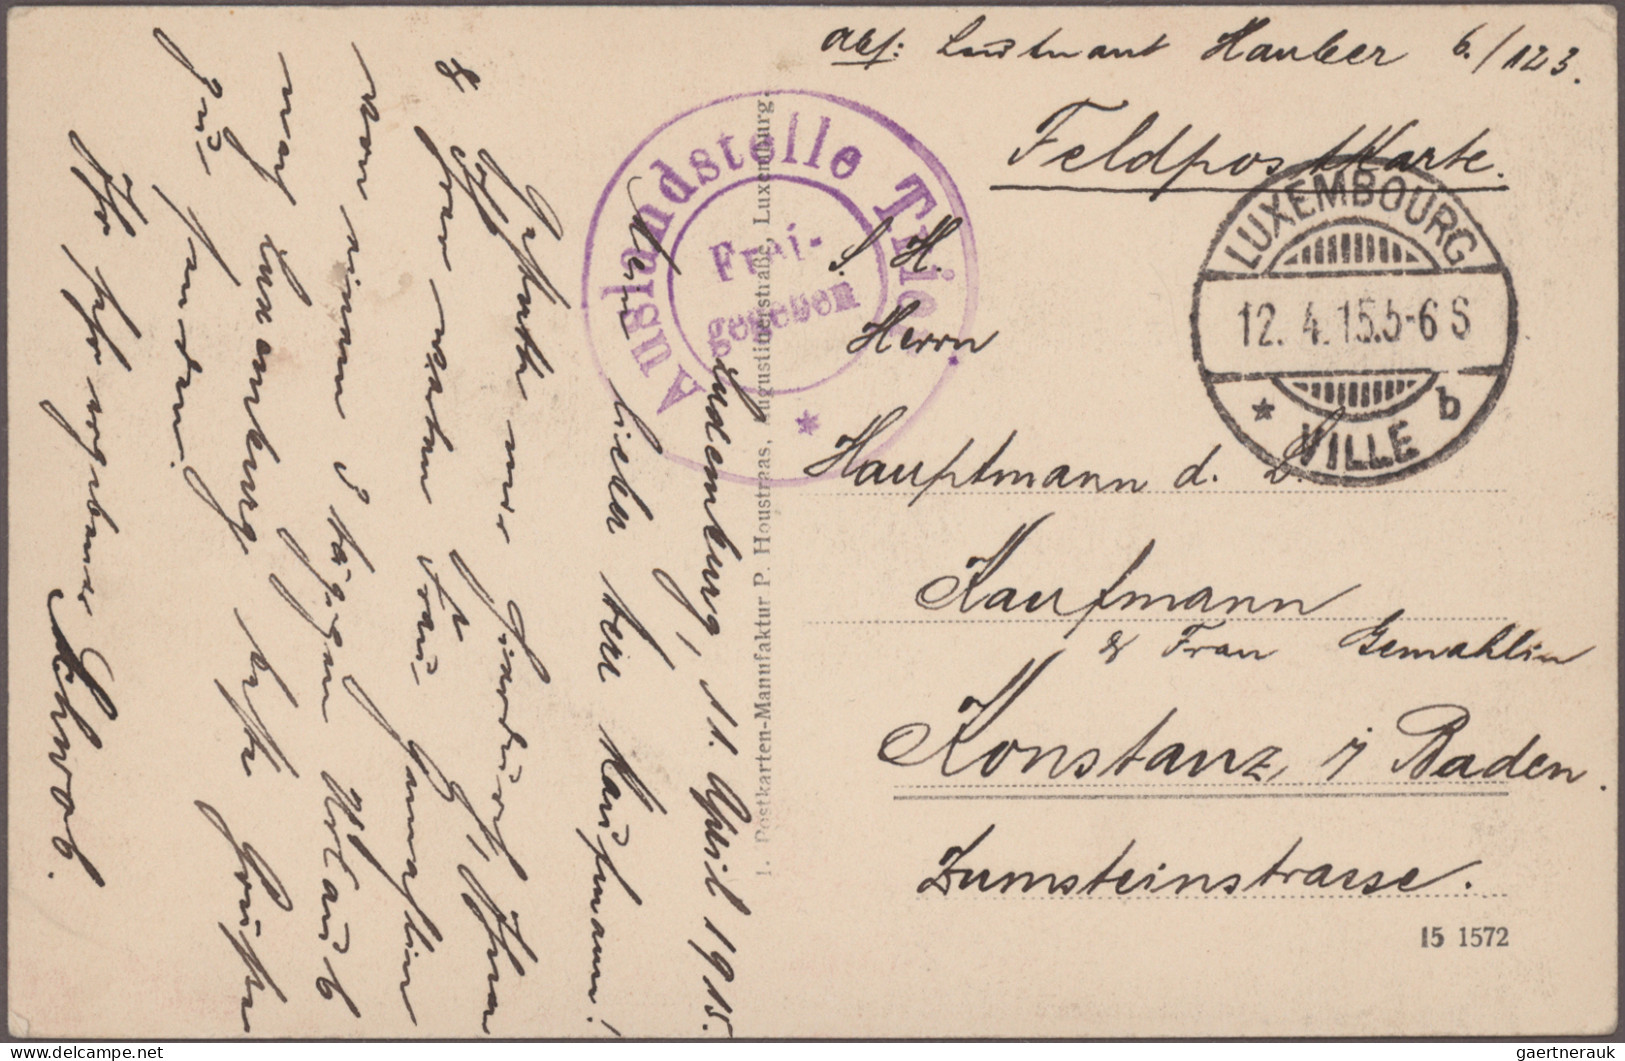 Abs: Leutnant Hauber 6./123.
Feldpostkarte.
S. H.
Herrn
Hauptmann d. L.
Kaufmann
& Frau Gemahlin
Konstanz, i/ Baden.
Zumsteinstrasse.
15 1572
LUXEMBOURG
12. 4. 15. 5-6 S
* b
VILLE
Auslandstelle Trier.
Frei-
gegeben
*
1. Postkarten-Manufaktur P. Houstraas, Augustinerstraße, Luxemburg.
Luxemburg, 11. April 1915.
Mein lieber Herr Kaufmann!
Gestatte mir hierdurch, Ihnen
&
Frau
von einem 3 tägigen Urlaub
nach Luxemburg beste Grüße
zu senden.
Ihr sehr ergebener Schwob.